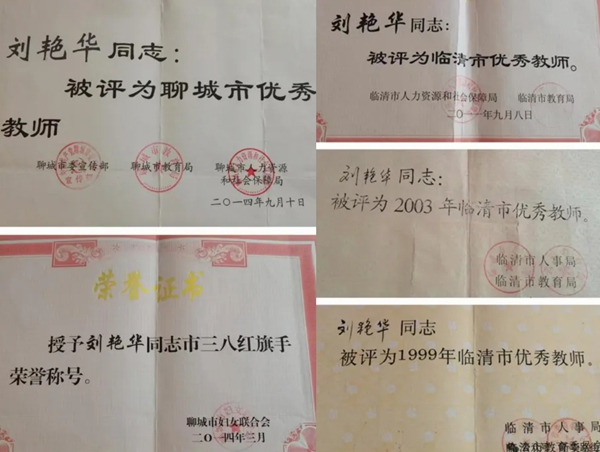 刘艳华同志：
被评为聊城市优秀
教师
聊城市委宣传部 聊城市教育局 聊城市人力资源
和社会保障局
二〇一四年九月十日
荣誉证书
授予刘艳华同志市三八红旗手
荣誉称号。
聊城市妇女联合会
二〇一四年三月
刘艳华同志：
被评为临清市优秀教师。
临清市人力资源和社会保障局 临清市教育局
二〇一一年九月八日
刘艳华同志：
被评为2003年临清市优秀教师。
临清市人事局
临清市教育局
刘艳华同志
被评为1999年临清市优秀教师。
临清市人事局
临清市教育委员会